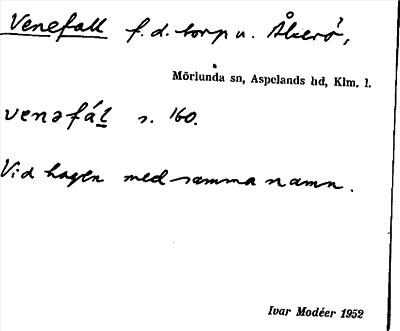 Venefall f.d. torp u. Åkerö,
Mörlunda sn, Aspelands hd, Klm. l.
venəfáḷ s. 160.
Vid hagen med samma namn.
Ivar Modéer 1952